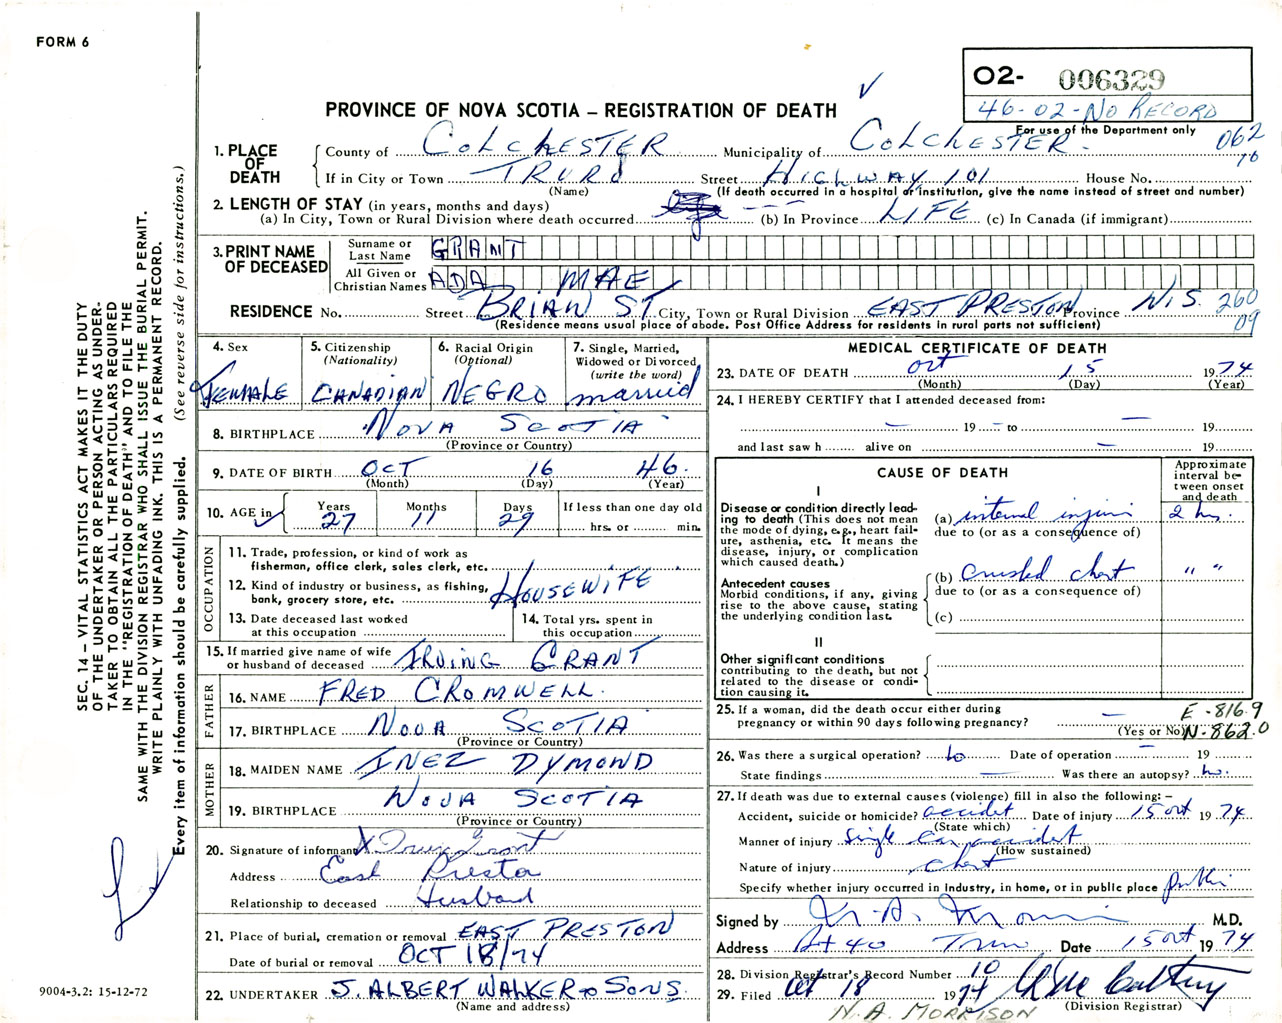 FORM 6
O2- 006329
46-02-NO RECORD
For use of the Department only
PROVINCE OF NOVA SCOTIA – REGISTRATION OF DEATH
062
10
1. PLACE OF DEATH
County of COLCHESTER Municipality of COLCHESTER.
If in City or Town TRURO Street HIGHWAY 101 House No.
(Name) (If death occurred in a hospital or institution, give the name instead of street and number)
2. LENGTH OF STAY (in years, months and days)
(a) In City, Town or Rural Division where death occurred (b) In Province LIFE (c) In Canada (if immigrant)
3. PRINT NAME OF DECEASED
Surname or Last Name GRANT
All Given or Christian Names ADA MAE
RESIDENCE No. Street BRIAN ST City, Town or Rural Division EAST PRESTON Province N.S. 260
09
(Residence means usual place of abode. Post Office Address for residents in rural parts not sufficient)
4. Sex FEMALE
5. Citizenship (Nationality) CANADIAN
6. Racial Origin (Optional) NEGRO
7. Single, Married, Widowed or Divorced (write the word) married
8. BIRTHPLACE NOVA SCOTIA
(Province or Country)
9. DATE OF BIRTH OCT 16 46.
(Month) (Day) (Year)
10. AGE in Years 27 Months 11 Days 29 If less than one day old hrs. or min.
OCCUPATION
11. Trade, profession, or kind of work as fisherman, office clerk, sales clerk, etc.
12. Kind of industry or business, as fishing, bank, grocery store, etc. HOUSEWIFE
13. Date deceased last worked at this occupation
14. Total yrs. spent in this occupation
15. If married give name of wife or husband of deceased IRVING GRANT
FATHER
16. NAME FRED CROMWELL.
17. BIRTHPLACE NOVA SCOTIA
(Province or Country)
MOTHER
18. MAIDEN NAME INEZ DYMOND
19. BIRTHPLACE NOVA SCOTIA
(Province or Country)
20. Signature of informant X Irving Grant
Address East Preston
Relationship to deceased Husband
21. Place of burial, cremation or removal EAST PRESTON
Date of burial or removal OCT 18/74
22. UNDERTAKER J. ALBERT WALKER & SONS
(Name and address)
MEDICAL CERTIFICATE OF DEATH
23. DATE OF DEATH Oct 15 1974
(Month) (Day) (Year)
24. I HEREBY CERTIFY that I attended deceased from:
— 19 — to — 19
and last saw h alive on — 19
CAUSE OF DEATH
Approximate interval between onset and death
I
Disease or condition directly leading to death (This does not mean the mode of dying, e.g., heart failure, asthenia, etc. It means the disease, injury, or complication which caused death.)
(a) internal injuries 2 hrs.
due to (or as a consequence of)
Antecedent causes
Morbid conditions, if any, giving rise to the above cause, stating the underlying condition last.
(b) crushed chest " "
due to (or as a consequence of)
(c)
II
Other significant conditions contributing to the death, but not related to the disease or condition causing it.
25. If a woman, did the death occur either during pregnancy or within 90 days following pregnancy? —
(Yes or No)
E-816.9
N-862.0
26. Was there a surgical operation? no Date of operation — 19
State findings — Was there an autopsy? no.
27. If death was due to external causes (violence) fill in also the following: –
Accident, suicide or homicide? accident Date of injury 15 Oct 1974
(State which)
Manner of injury single car accident
(How sustained)
Nature of injury chest
Specify whether injury occurred in industry, in home, or in public place public
Signed by N. A. Morrison M.D.
Address Date 15 Oct 1974
28. Division Registrar's Record Number 10
29. Filed Oct 18 1974
(Division Registrar)
N. A. MORRISON
SEC. 14 – VITAL STATISTICS ACT MAKES IT THE DUTY
OF THE UNDERTAKER OR PERSON ACTING AS UNDER-
TAKER TO OBTAIN ALL THE PARTICULARS REQUIRED
IN THE "REGISTRATION OF DEATH" AND TO FILE THE
SAME WITH THE DIVISION REGISTRAR WHO SHALL ISSUE THE BURIAL PERMIT.
WRITE PLAINLY WITH UNFADING INK. THIS IS A PERMANENT RECORD.
Every item of information should be carefully supplied. (See reverse side for instructions.)
9004-3.2: 15-12-72